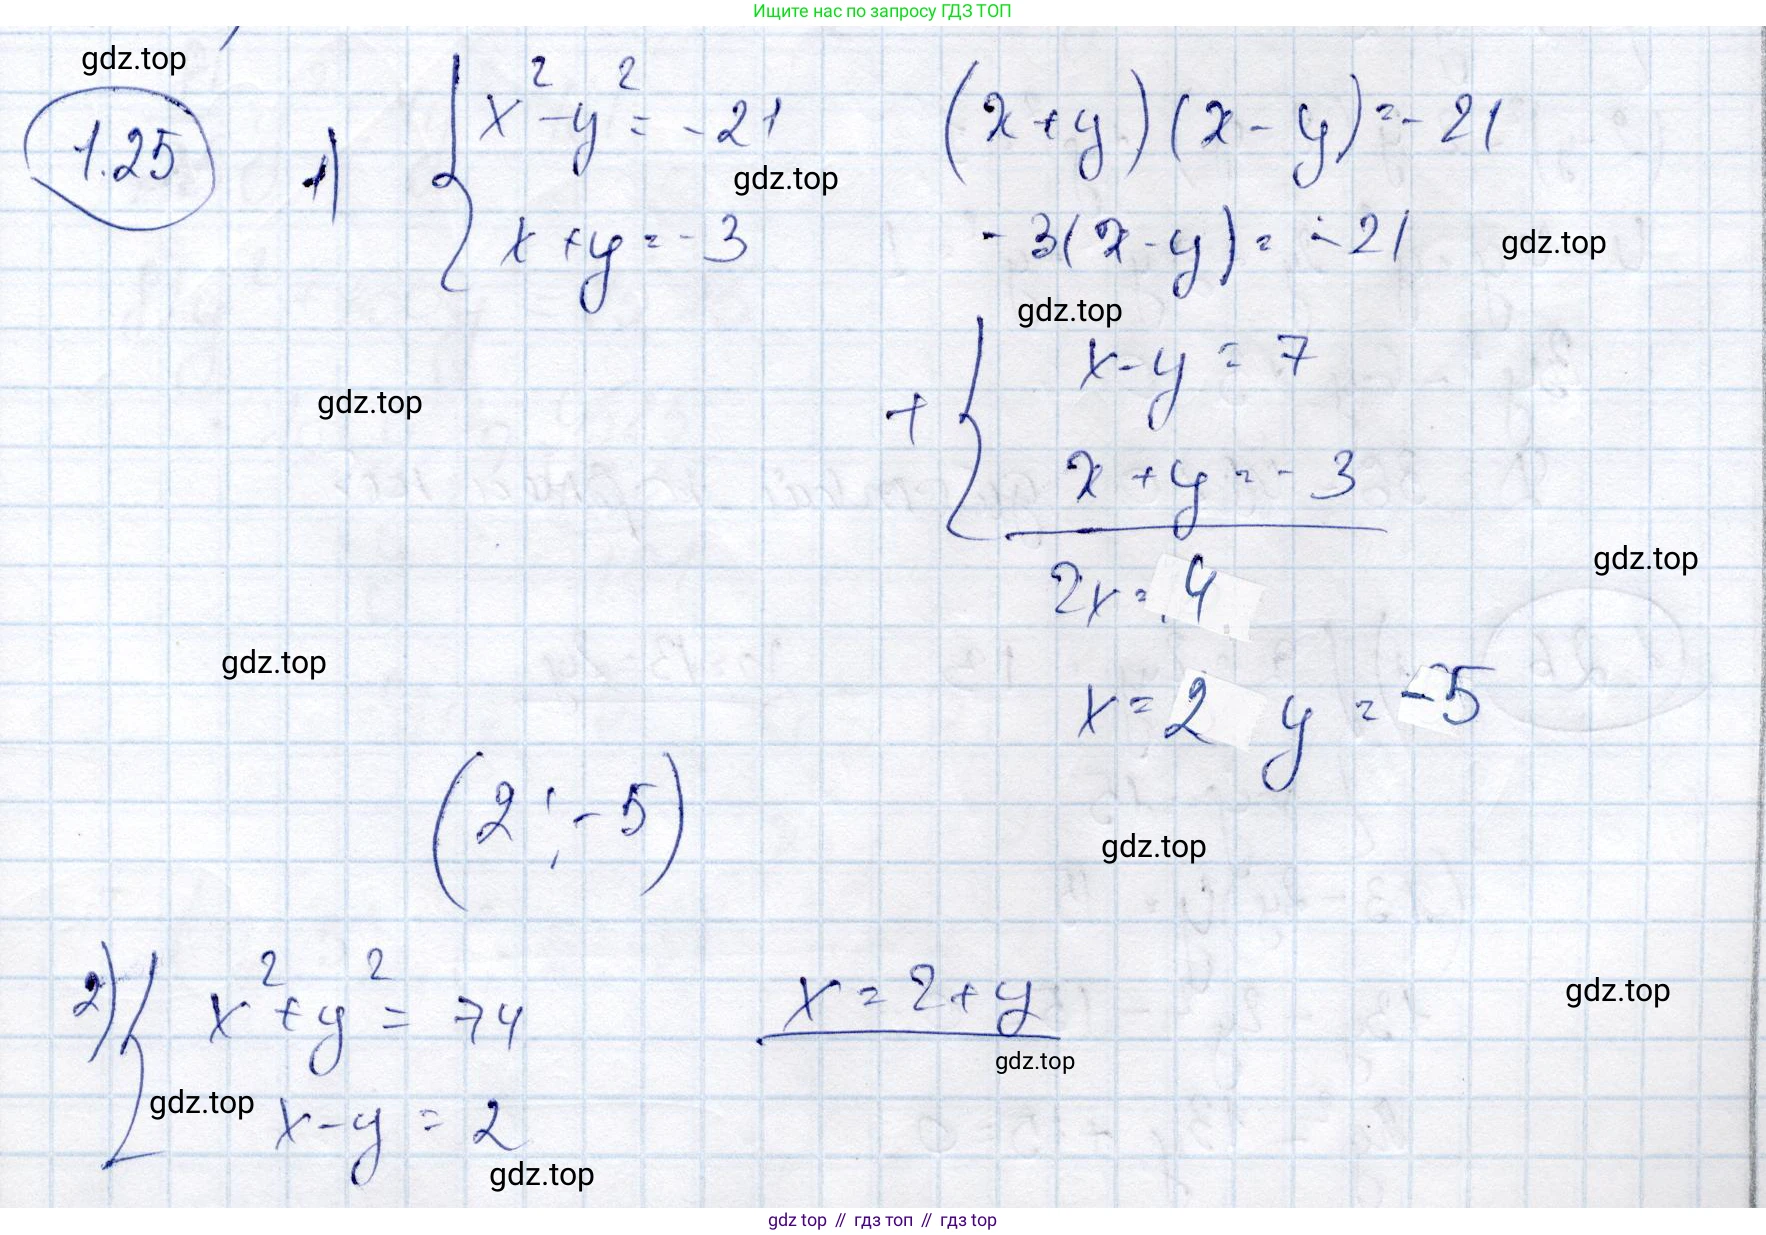 Ищите нас по запросу ГДЗ ТОП
gdz.top
1.25 1) { x² - y² = -21 (x + y)(x - y) = -21
gdz.top
x + y = -3 -3(x - y) = -21 gdz.top
gdz.top
+ { x - y = 7
gdz.top
x + y = -3
gdz.top
2x = 4
gdz.top
x = 2 y = -5
(2 ; -5)
gdz.top
2) { x² + y² = 74 x = 2 + y gdz.top
gdz.top
gdz.top
x - y = 2
gdz.top
gdz top // гдз топ // gdz top